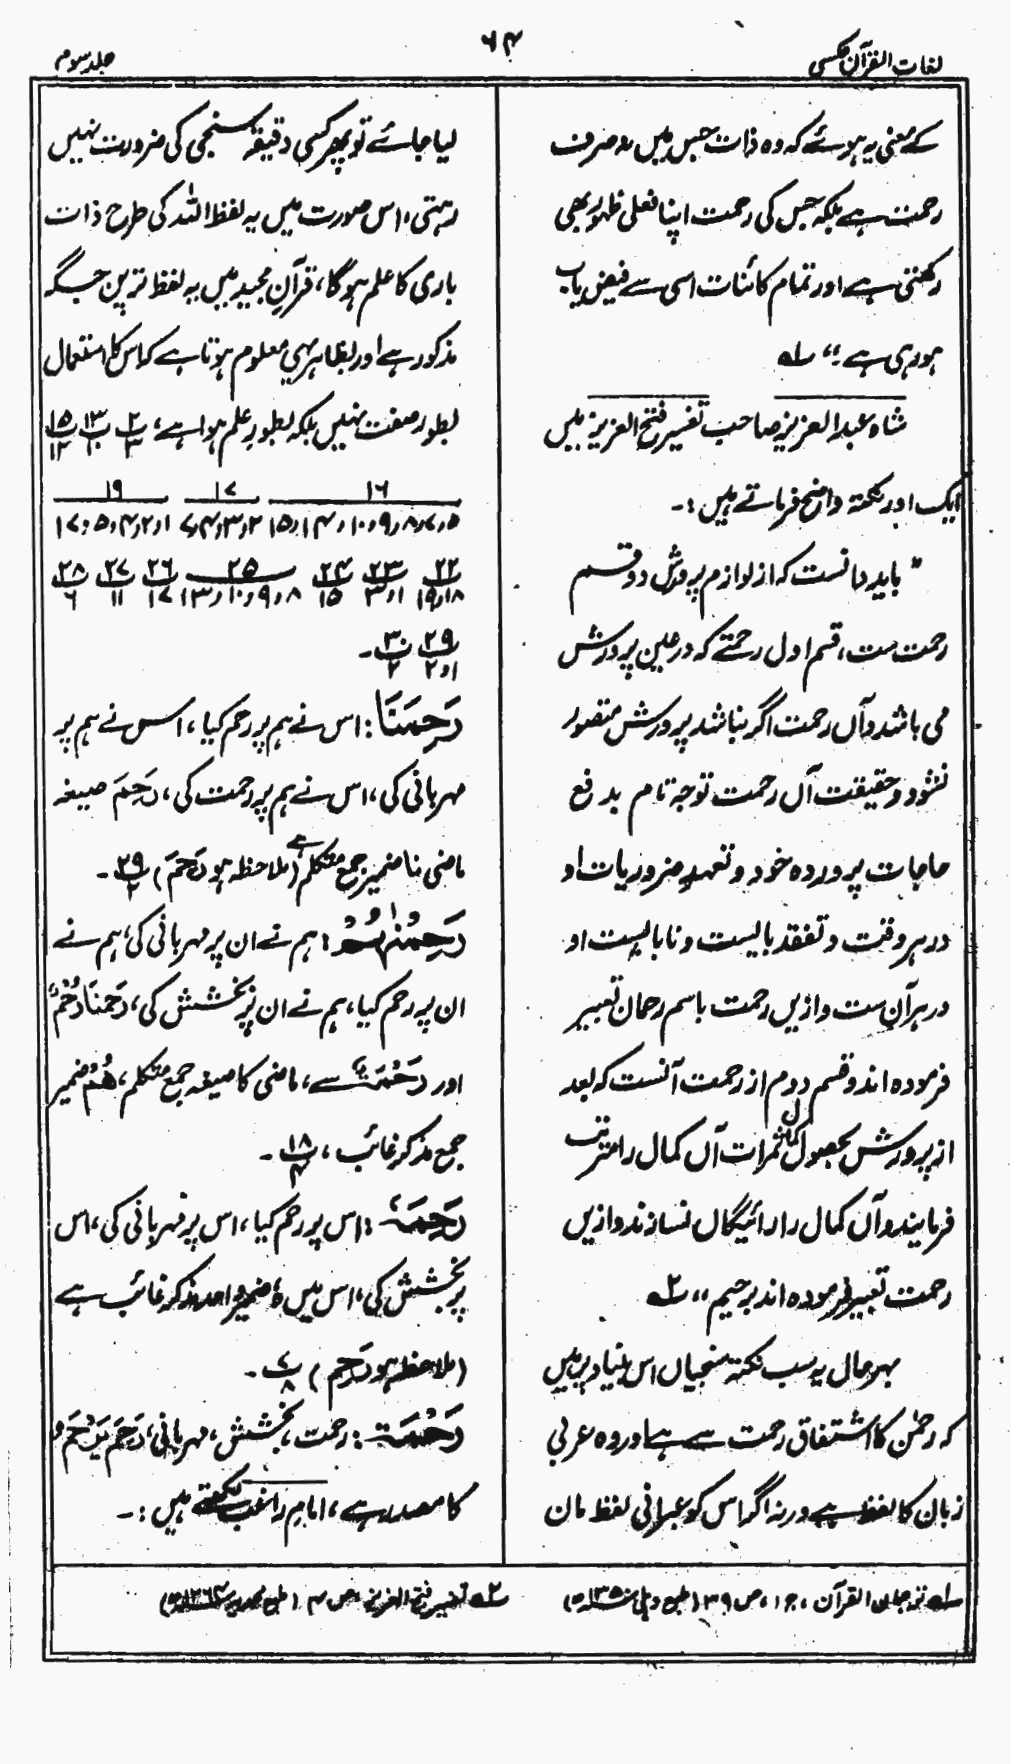 لغات القرآن عکسی
۶۴
جلد سوم
کے معنی یہ ہوئے کہ وہ ذات جس میں نہ صرف
رحمت ہے بلکہ جس کی رحمت اپنا فعلی ظہور بھی
رکھتی ہے اور تمام کائنات اسی سے فیض یاب
ہو رہی ہے :،، لہ
شاہ عبدالعزیز صاحب تفسیر فتح العزیز میں
ایک اور نکتہ واضح فرماتے ہیں :۔
" باید دانست کہ از لوازم پرورش دو قسم
رحمت ست، قسم اول رحمتے کہ در عین پرورش
می باشد و آں رحمت اگر نباشد پرورش متصور
نشود و حقیقت آں رحمت توجہ تام بدفع
حاجات پروردہ خود و تعہد ضروریات او
در ہر وقت و تفقد بالیست و نابالیست او
در ہر آن ست و ازیں رحمت باسم رحمان تعبیر
فرمودہ اند و قسم دوم از رحمت آنست کہ بعد
از پرورش بحصول کمال ثمرات آں کمال را مترتب
فرمایند و آں کمال را رائیگاں نسازند و ازیں
رحمت تعبیر فرمودہ اند برحیم ،، ۲ہ
بہرحال یہ سب نکتہ سنجیاں اس بنیاد پر ہیں
کہ رحمٰن کا اشتقاق رحمت سے ہے اور وہ عربی
زبان کا لفظ ہے ورنہ اگر اس کو عبرانی لفظ مان
لیا جائے تو پھر کسی دقیقہ سنجی کی ضرورت نہیں
رہتی، اس صورت میں یہ لفظ اللہ کی طرح ذات
باری کا علم ہوگا، قرآن مجید میں یہ لفظ ترپن جگہ
مذکور ہے اور بظاہر یہی معلوم ہوتا ہے کہ اس کا استعمال
بطور صفت نہیں بلکہ بطور علم ہوا ہے، پ۲ ۳ پ۱۳ ۱۰ پ۱۵ ۱۲
۱۶ ۱۷ ۱۹
۵و۷و۸و۹و۱۰و۴و۱و۱۵ ۲و۳و۴و۷ ۱و۲و۴و۵و۱۷
۲۲ ۲۳ ۲۴ ۲۵ ۲۶ ۲۷ ۲۸
۱۸و۱۹ ۱و۳ ۱۵ ۸و۹و۱۰و۱۳ ۱۷ ۱۱ ۶
۲۹ ۳۰
۱و۲ ۲ ۔
رَحِمَنَا : اس نے ہم پر رحم کیا، اس نے ہم پر
مہربانی کی، اس نے ہم پر رحمت کی، رَحِمَ صیغہ
ماضی نا ضمیر جمع متکلم ہے (ملاحظہ ہو رَحِمَ) ۲۹ ۲ ۔
رَحِمْنٰهُمْ : ہم نے ان پر مہربانی کی، ہم نے
ان پر رحم کیا، ہم نے ان پر بخشش کی، رَحِمْنَا رُحْمٌ
اور رَحْمَةٌ سے، ماضی کا صیغہ جمع متکلم، هُمْ ضمیر
جمع مذکر غائب، ۱۸ ۴ ۔
رَحِمَهٗ : اس پر رحم کیا، اس پر مہربانی کی، اس
پر بخشش کی، اس میں ہٗ ضمیر واحد مذکر غائب ہے
(ملاحظہ ہو رَحِمَ) پ۷ ۸ ۔
رَحْمَة : رحمت، بخشش، مہربانی، رَحِمَ یَرْحَمُ
کا مصدر ہے، امام راغب لکھتے ہیں :۔
لہ ترجمان القرآن، ج۱، ص ۳۹ (طبع دہلی ۱۳۵۰ھ)
۲ہ تفسیر فتح العزیز ص ۴ (طبع محمدی